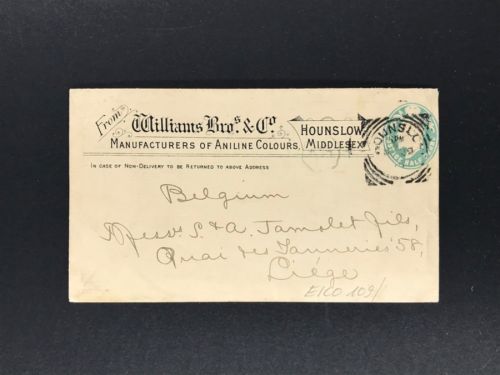 From Williams Bros. & Co.
Manufacturers of Aniline Colours.
Hounslow,
Middlesex
In case of Non-Delivery to be Returned to above Address
HOUNSLO
Belgium
Messrs S. & A. Jamolet fils,
Quai des Tanneries 58,
Liége